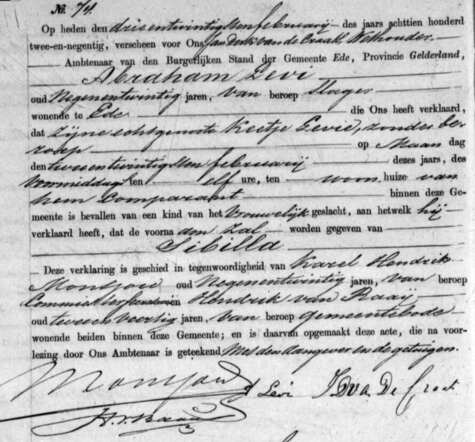 No. 74.
Op heden den drieentwintigsten februarij des jaars achttien honderd
twee-en-negentig, verscheen voor Ons Jan Derk van de Craats Wethouder
Ambtenaar van den Burgerlijken Stand der Gemeente Ede, Provincie Gelderland,
Abraham Levi
oud Negenentwintig jaren, van beroep Slager
wonende te Ede die Ons heeft verklaard,
dat Zijne echtgenoote Keetje Levie, zonder be-
roep op Maan dag
den tweeentwintigsten februarij dezes jaars, des
voormiddags ten elf ure, ten woon huize van
hem Comparant binnen deze Ge-
meente is bevallen van een kind van het Vrouwelijk geslacht, aan hetwelk hij
verklaard heeft, dat de voorna men zal worden gegeven van
Sibilla
Deze verklaring is geschied in tegenwoordigheid van Karel Hendrik
oud Negenentwintig jaren, van beroep
Hendrik van Raaij
oud tweeenveertig jaren, van beroep gemeentebode
wonende beiden binnen deze Gemeente; en is daarvan opgemaakt deze acte, die na voor-
lezing door Ons Ambtenaar is geteekend Met den aangever en de getuigen.
A Levi